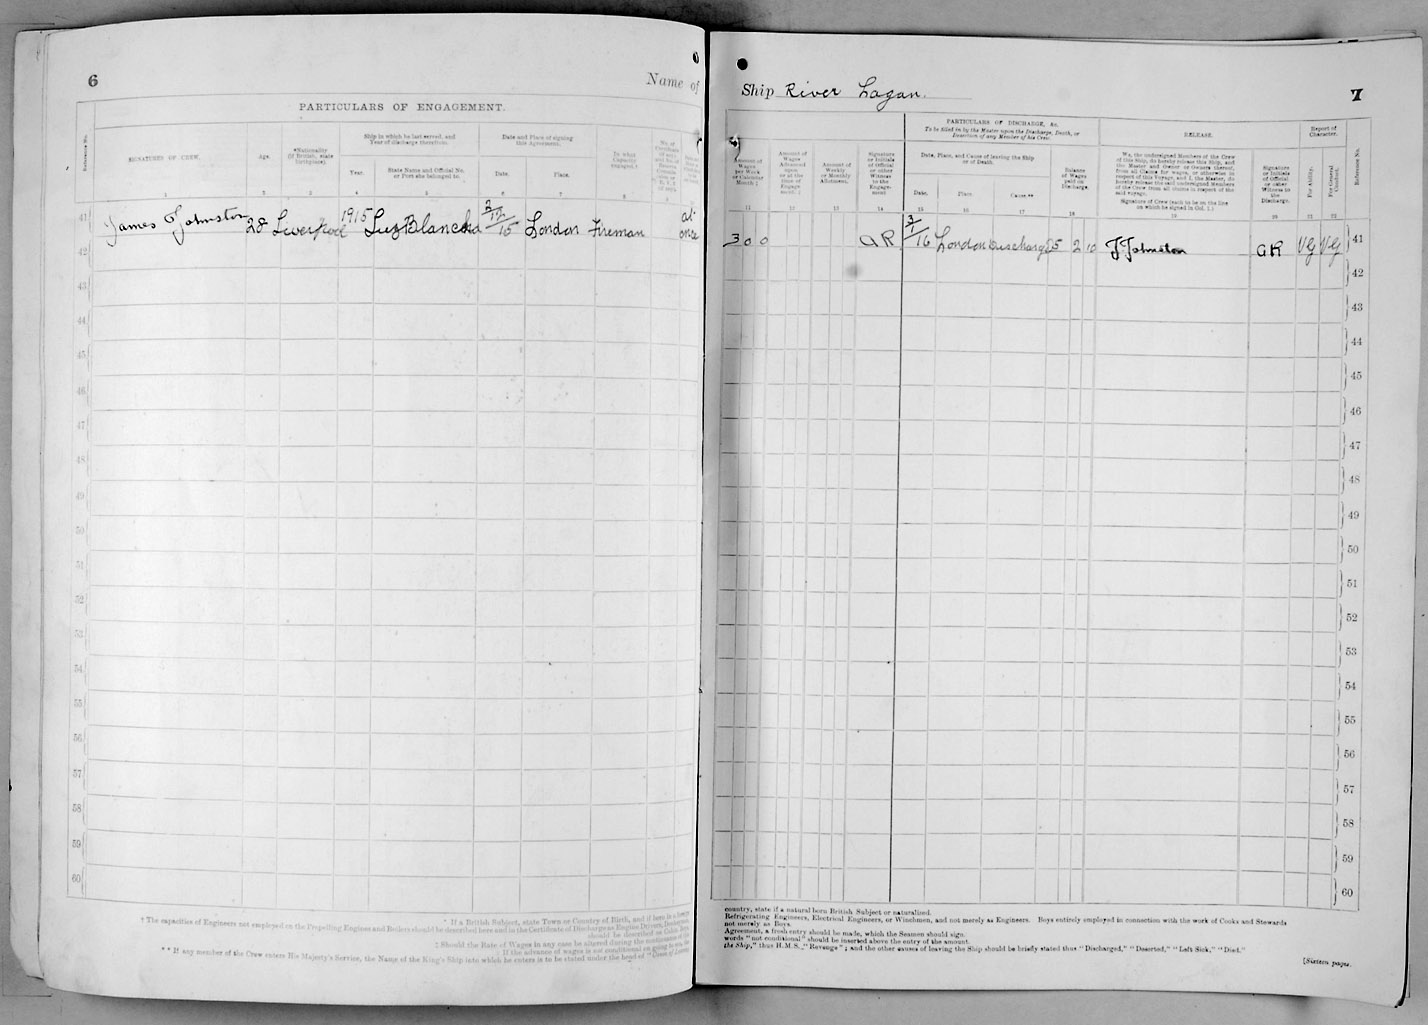 6
Name of
PARTICULARS OF ENGAGEMENT.
Reference No.
SIGNATURES OF CREW.
Age.
*Nationality
(if British, state
birthplace).
Ship in which he last served, and
Year of discharge therefrom.
Year.
State Name and Official No.
or Port she belonged to.
Date and Place of signing
this Agreement.
Date.
Place.
In what
Capacity
engaged.
1 2 3 4 5 6 7 8
41 James Johnston 28 Liverpool 1915 Blanch 15 London Fireman at once
42
43
44
45
46
47
48
49
50
51
52
53
54
55
56
57
58
59
60
† The capacities of Engineers not employed on the Propelling Engines and Boilers should be described here and in the Certificate of Discharge as Engine Drivers,
* If a British Subject, state Town or Country of Birth, and if born in a foreign
‡ Should the Rate of Wages in any case be altered during the
If the advance of wages is not conditional on going to sea, the
** If any member of the Crew enters His Majesty's Service, the Name of the King's Ship into which he enters is to be stated under the head of
Ship River Lagan.
7
Amount of
Wages
per Week
or Calendar
Month ‡
Amount of
Wages
Advanced
upon
or at the
time of
Engage-
ment. ‡
Amount of
Weekly
or Monthly
Allotment.
Signature
or Initials
of Official
or other
Witness
to the
Engage-
ment
PARTICULARS OF DISCHARGE, &c.
To be filled in by the Master upon the Discharge, Death, or
Desertion of any Member of his Crew.
Date, Place, and Cause of leaving the Ship
or of Death.
Date.
Place.
Cause **
Balance
of Wages
paid on
Discharge.
RELEASE.
We, the undersigned Members of the Crew
of this Ship, do hereby release this Ship, and
the Master and Owner or Owners thereof,
from all Claims for wages, or otherwise in
respect of this Voyage, and I, the Master, do
hereby release the said undersigned Members
of the Crew from all claims in respect of the
said voyage.
Signature of Crew (each to be on the line
on which he signed in Col. 1.)
Signature
or Initials
of Official
or other
Witness to
the
Discharge.
Report of
Character.
For Ability.
For General
Conduct.
Reference No.
11 12 13 14 15 16 17 18 19 20 21 22
3 0 0 GR 3/1/16 London Discharged 5 2 10 J Johnston GR VG VG 41
42
43
44
45
46
47
48
49
50
51
52
53
54
55
56
57
58
59
60
country, state if a natural born British Subject or naturalised.
Refrigerating Engineers, Electrical Engineers, or Winchmen, and not merely as Engineers. Boys entirely employed in connection with the work of Cooks and Stewards
not merely as Boys.
Agreement, a fresh entry should be made, which the Seamen should sign.
words "not conditional" should be inserted above the entry of the amount.
the Ship," thus H.M.S. "Revenge"; and the other causes of leaving the Ship should be briefly stated thus "Discharged," "Deserted," "Left Sick," "Died."
[Sixteen pages.